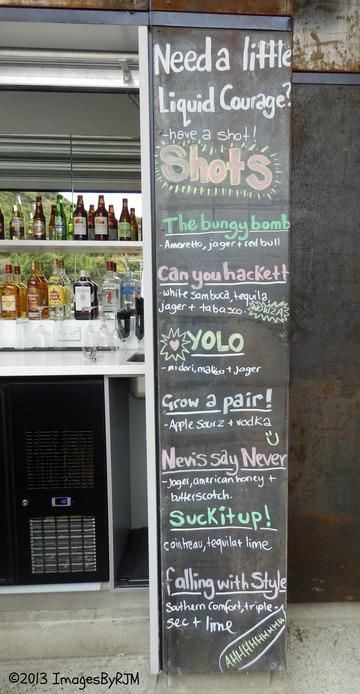 Need a little
Liquid Courage?
-have a shot!
Shots
The bungy bomb
- Amaretto, jager + red bull
Can you hackett
- white sambuca, tequila,
jager + tabasco.
YOLO
- midori, malibu + jager
Grow a pair!
- Apple Sourz + vodka
Nevis say Never
- Jager, american honey +
- butterscotch.
Suck it up!
cointreau, tequila + lime
falling with Style
Southern comfort, triple -
sec + lime
AHHHHHHHH
©2013 ImagesByRJM